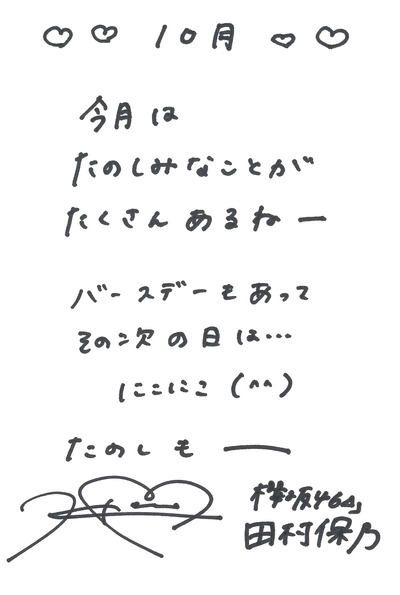 ♡ ♡ 10月 ♡ ♡
今月は
たのしみなことが
たくさんあるねー
バースデーもあって
その次の日は…
にこにこ (^^)
たのしもー
櫻坂46
田村保乃